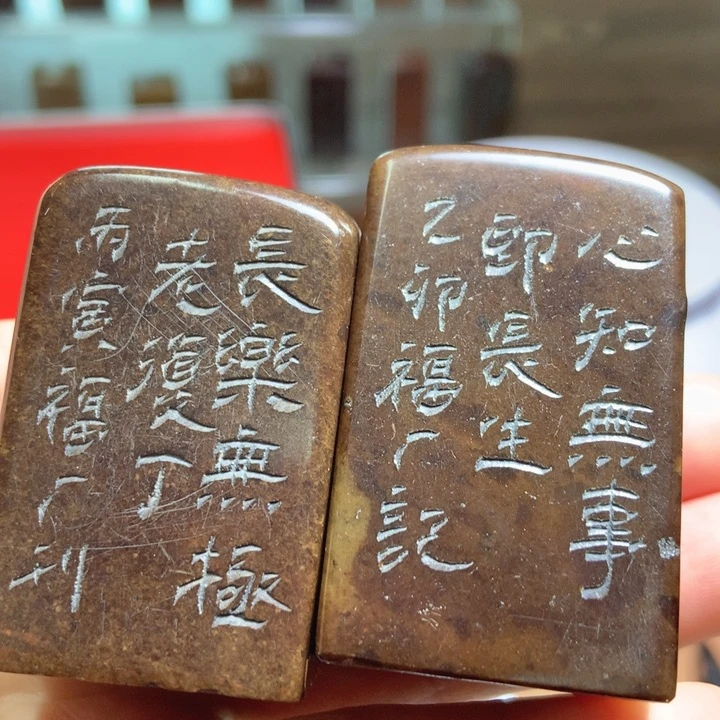 心知無事
即長生
乙卯福厂記
長樂無極
老復丁
丙寅福厂刊